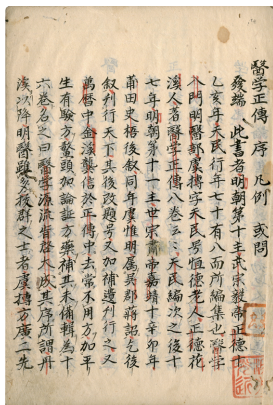 醫学正傳 序 凡例 或問
發端 此書者明朝第十主武宗毅帝正德十
乙亥年天民行年七十有八而所編集也醫学
入門明醫部虞摶字天民号恒德老人正德花
溪人著醫学正傳八卷云々天民編次之後十
七年明朝第十一主世宗肅帝嘉靖十辛卯年
莆田史梧後叙同年虞惟明属吴郡蒋詔乞後
叙刋行天下其後改題号又加補遺刋行之又
萬暦中金溪龔信於正傳中去常不用方加平
生有験方鰲頭加論証方藥補其未備輯為十
六卷名之曰醫学源流肯綮大成其序所謂丹
溪以降明醫
後群之士者虞摶方廣二先